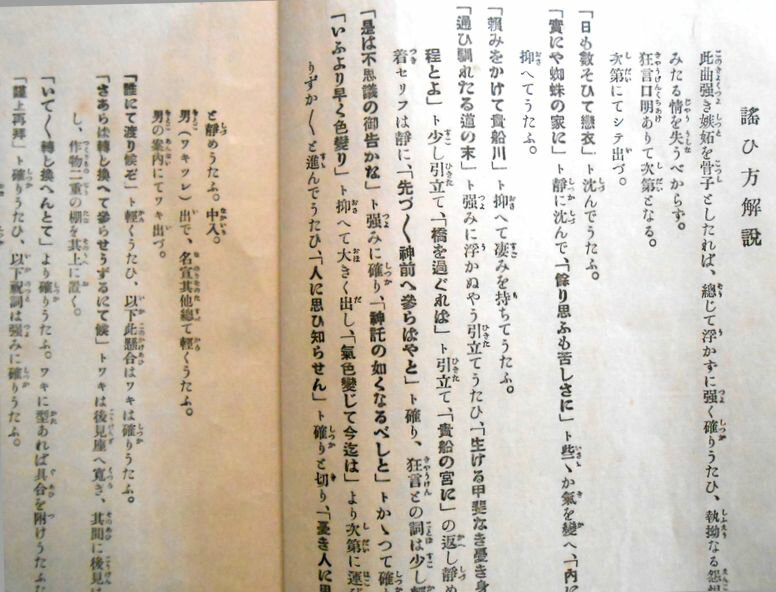 謠ひ方解説
此曲强き嫉妬を骨子としたれば、總じて浮かずに强く確りうたひ、執拗なる怨
みたる情を失うべからず。
狂言口明ありて次第となる。
次第にてシテ出づ。
「日も數そひて戀衣」ト沈んでうたふ。
「實にや蜘蛛の家に」ト靜に沈んで、「餘り思ふも苦しさに」ト些〻か氣を變へ、「內に
抑へてうたふ。
「賴みをかけて貴船川」ト抑へて凄みを持ちてうたふ。
「通ひ馴れたる道の末」ト强みに浮かぬやう引立てうたひ、「生ける甲斐なき憂き身
程とよ」ト少し引立て、「橋を過ぐれば」ト引立て、「貴船の宮に」の返し靜め
着セリフは靜に、「先づ〱神前へ參らばやと」ト確り、狂言との詞は少し
「是は不思議の御告かな」ト强みに確り、「神託の如くなるべしと」トかゝつて確
「いふより早く色變り」ト抑へて大きく出し、「氣色變じて今迄は」より次第に運び
りずか〱と進んでうたひ、「人に思ひ知らせん」ト確りと切り、「憂き人に思
と靜めうたふ。中入。
男(ワキツレ)出で、名宣其他總て輕くうたふ。
男の案內にてワキ出づ。
「誰にて渡り候ぞ」ト輕くうたひ、以下此懸合はワキは確りうたふ。
「さあらば轉じ換へて參らせうずるにて候」トワキは後見座へ寛ぎ、其間に後見は
し、作物二重の棚を其上に置く。
「いで〱轉じ換へんとて」より確りうたふ。ワキに型あれば具合を附けうたふ
「謹上再拜」ト確りうたひ、以下祝詞は强みに確りうたふ。